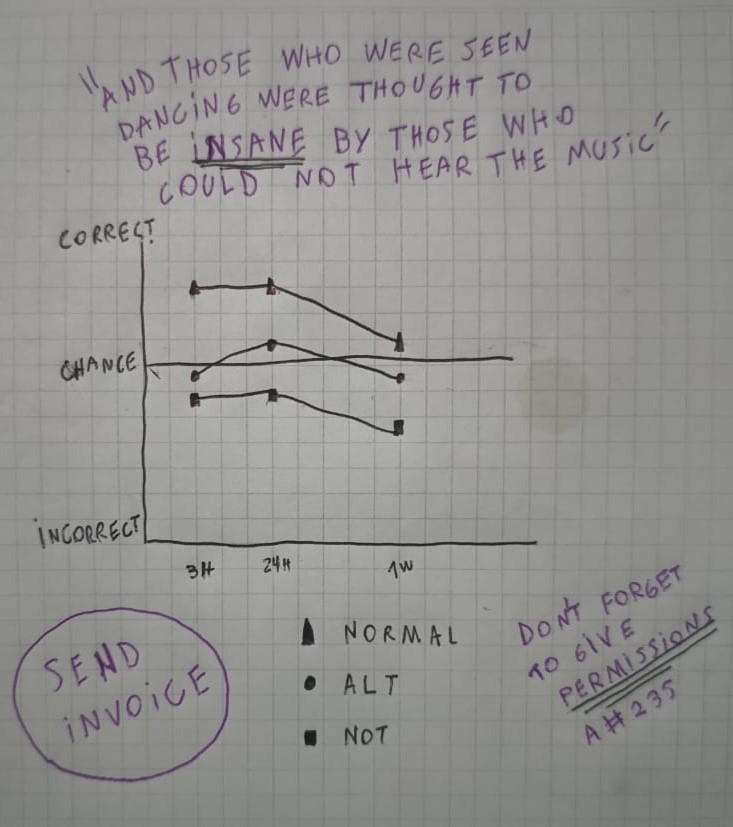 "AND THOSE WHO WERE SEEN
DANCING WERE THOUGHT TO
BE INSANE BY THOSE WHO
COULD NOT HEAR THE MUSIC"
CORRECT
CHANCE
INCORRECT
3H 24H 1W
NORMAL
ALT
NOT
SEND
INVOICE
DON'T FORGET
TO GIVE
PERMISSIONS
A#235